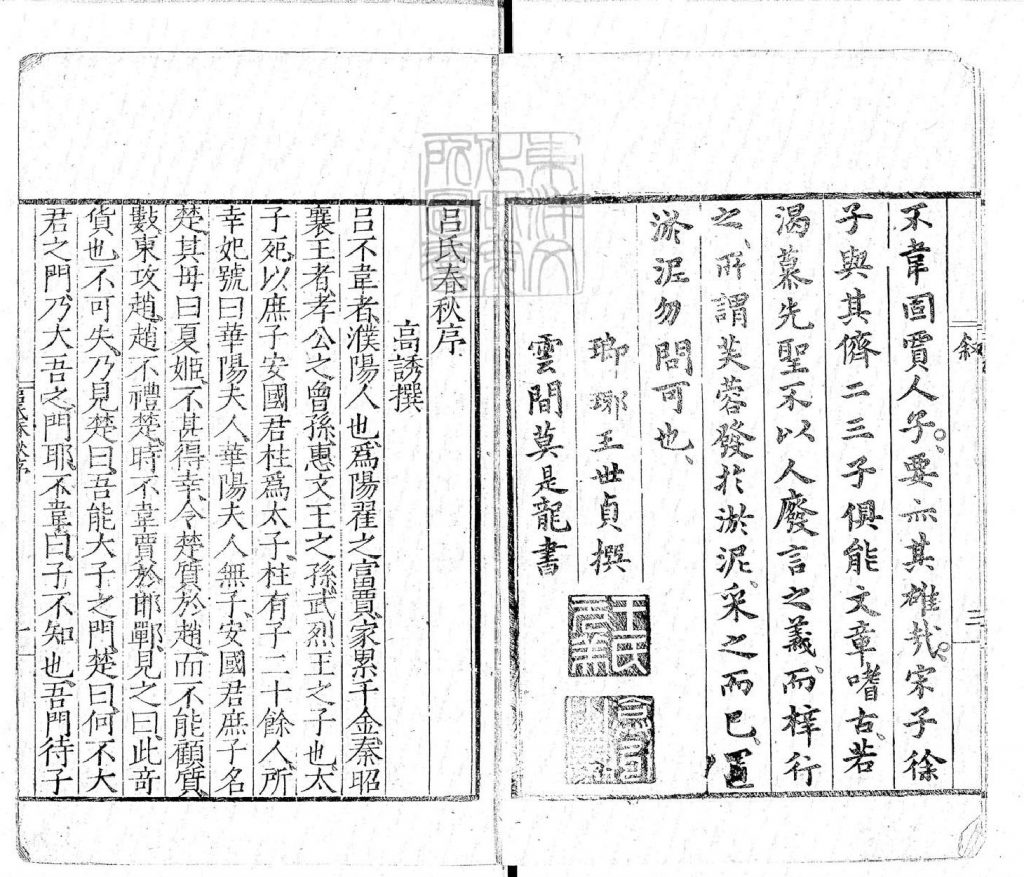 叙
三
不韋固賈人子。要亦其雄哉。宋子徐
子與其儕二三子俱能文章嗜古。若
渴慕先聖不以人廢言之義。而梓行
之、所謂芙蓉發於淤泥。采之而已。置
淤泥勿問可也、
瑯琊王世貞撰
雲間莫是龍書
呂氏春秋序
高誘撰
呂不韋者、濮陽人也、爲陽翟之富賈、家累千金、秦昭
襄王者、孝公之曾孫、惠文王之孫、武烈王之子也、太
子死、以庶子安國君柱爲太子、柱有子二十餘人、所
幸妃號曰華陽夫人、華陽夫人無子、安國君庶子名
楚、其母曰夏姬、不甚得幸、令楚質於趙、而不能顧質、
數東攻趙、趙不禮楚、時不韋賈於邯鄲、見之曰、此奇
貨也、不可失、乃見楚曰、吾能大子之門、楚曰、何不大
君之門、乃大吾之門耶、不韋曰、子不知也、吾門待子
呂氏春秋序
一